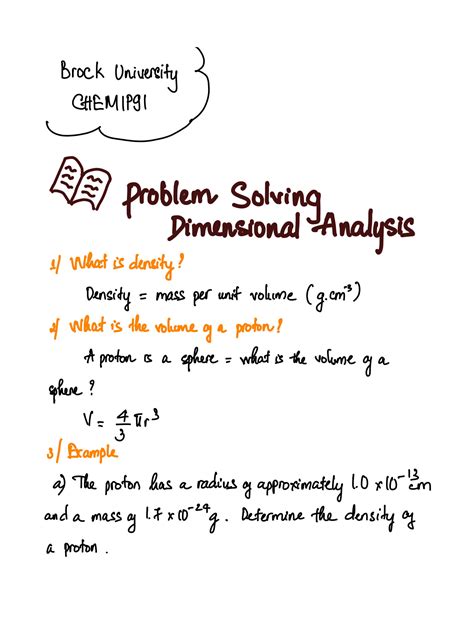 Brock University
CHEM1P91
Problem Solving
Dimensional Analysis
1/ What is density?
Density = mass per unit volume (g.cm⁻³)
2/ What is the volume of a proton?
A proton is a sphere = what is the volume of a
sphere?
V = 4/3 πr³
3/ Example
a) The proton has a radius of approximately 1.0 x 10⁻¹³ cm
and a mass of 1.7 x 10⁻²⁴ g. Determine the density of
a proton.